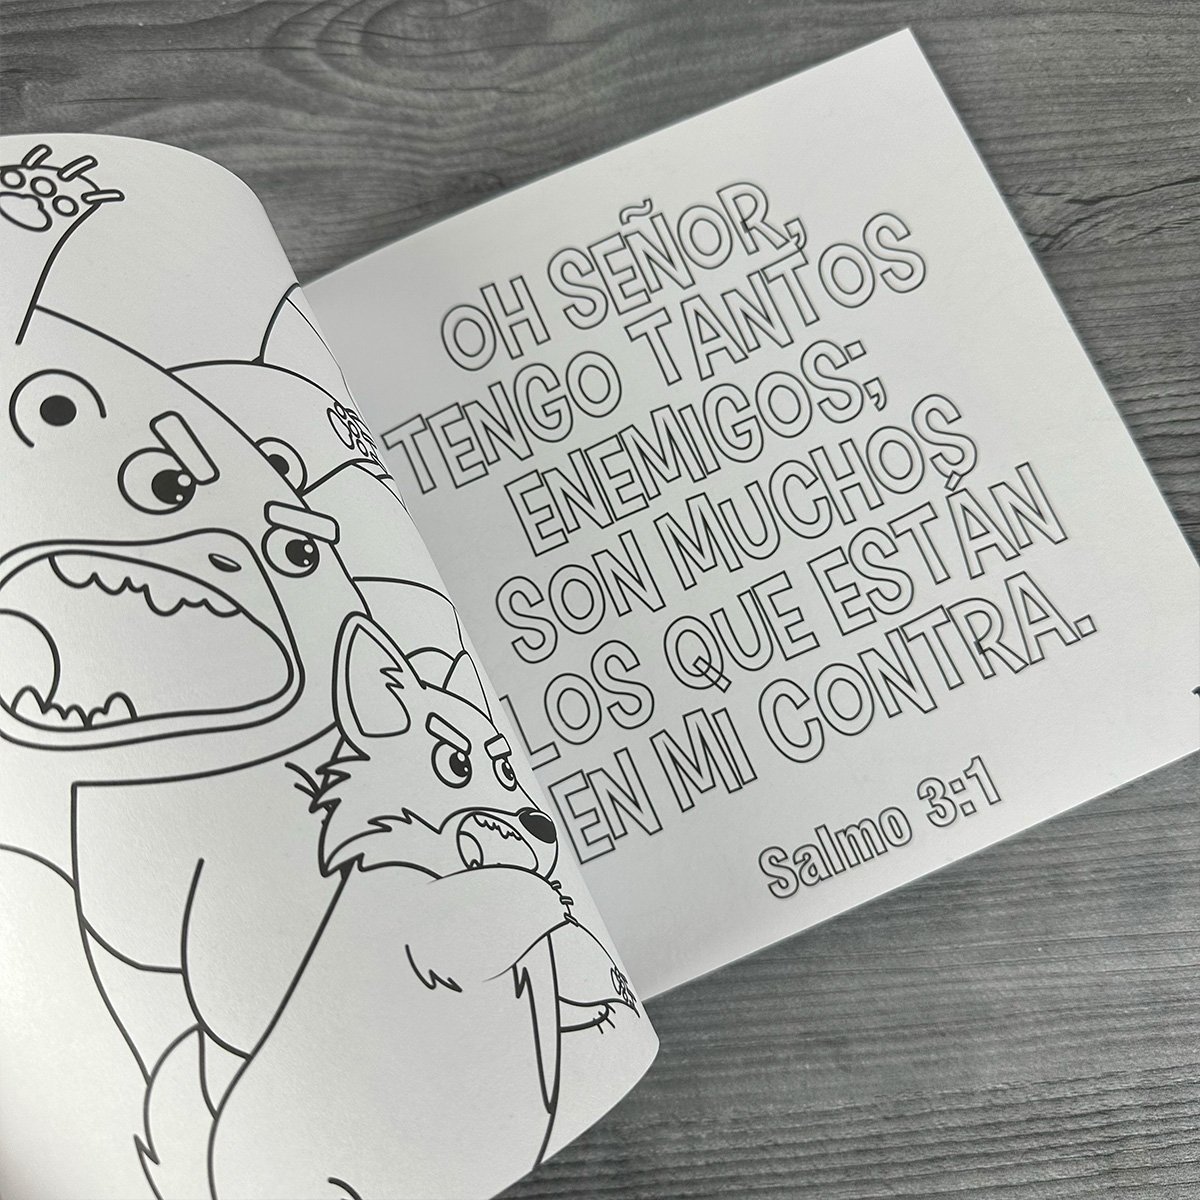 OH SEÑOR,
TENGO TANTOS
ENEMIGOS;
SON MUCHOS
LOS QUE ESTÁN
EN MI CONTRA.
Salmo 3:1